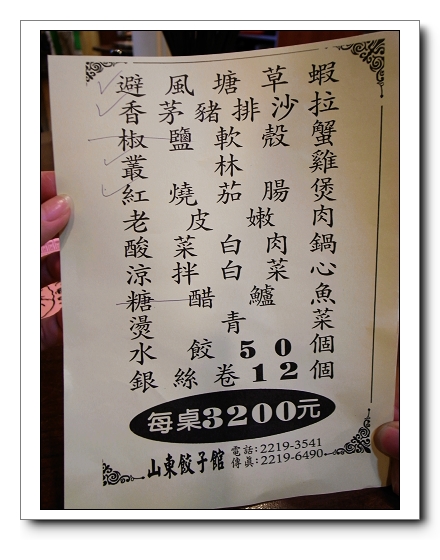 避風塘草蝦
香茅豬排沙拉
椒鹽軟殼蟹
叢林雞
紅燒茄腸煲
老皮嫩肉
酸菜白肉鍋
涼拌白菜心
糖醋鱸魚
燙青菜
水餃50個
銀絲卷12個
每桌3200元
山東餃子館
電話:2219-3541
傳真:2219-6490